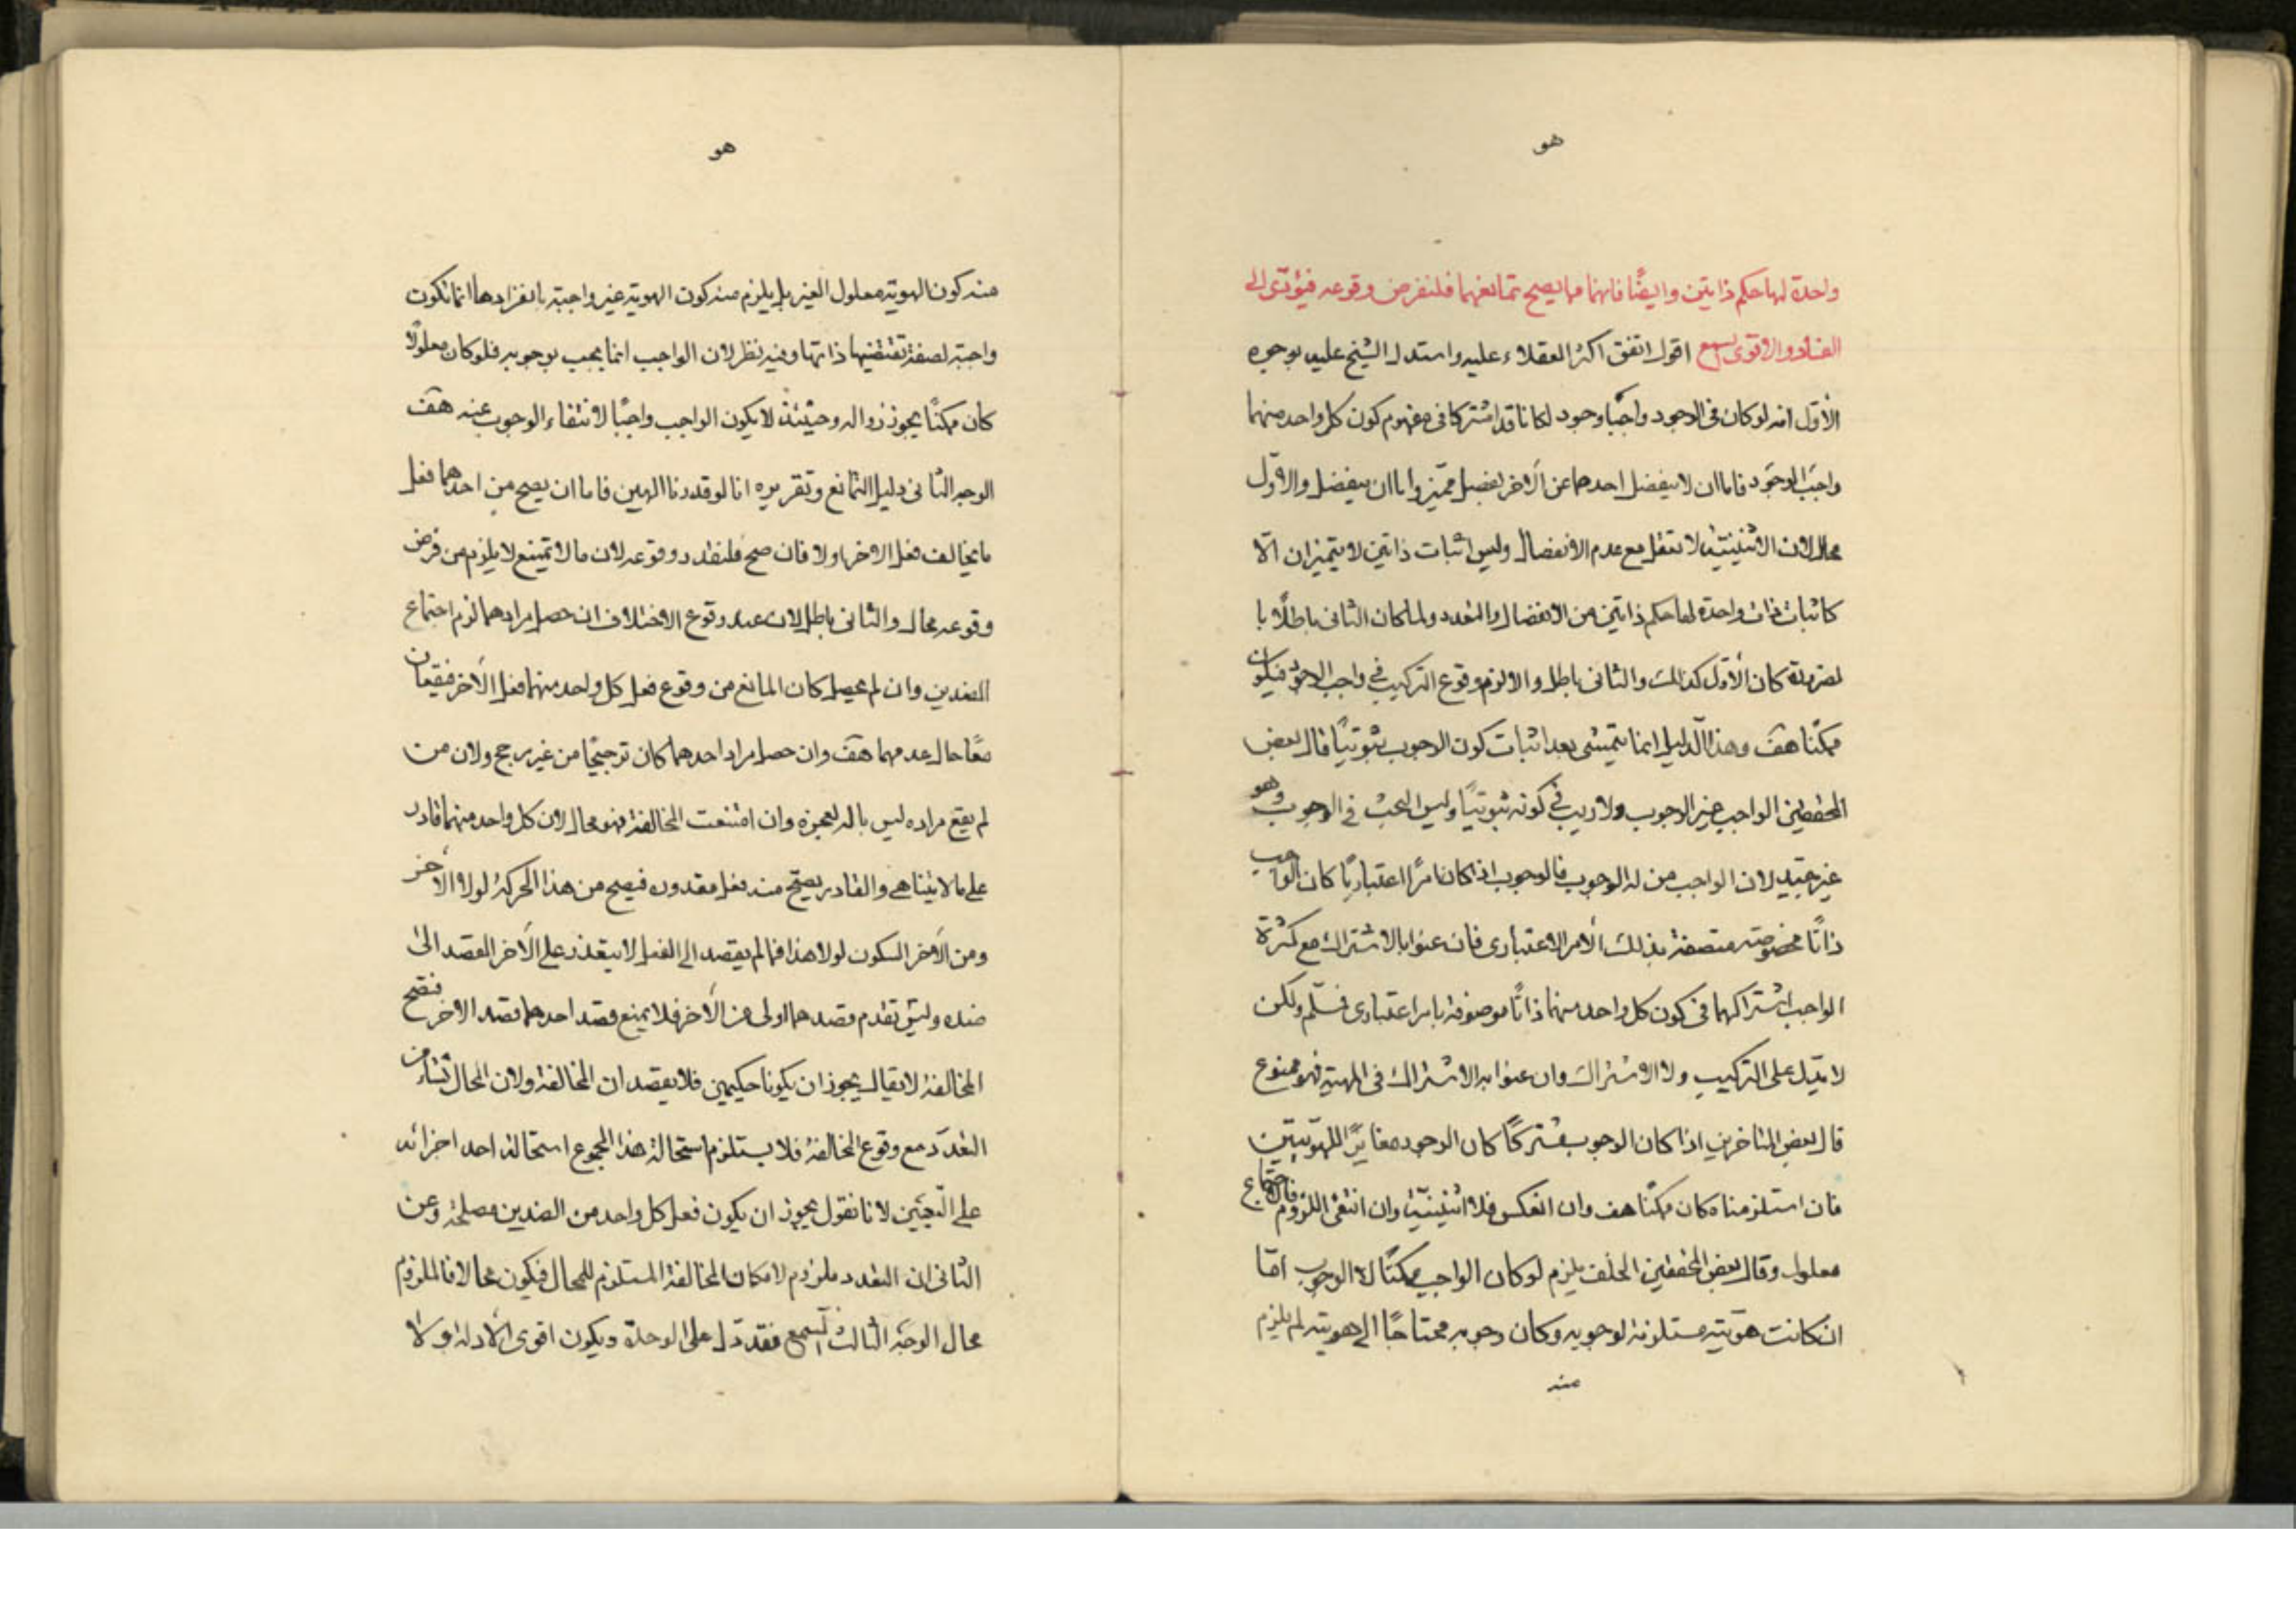 هو
واحدة لها حكم ذاتين وايضًا فانهما مما يصح تمانعهما فلنفرض وقوعه فيؤدّى الى
الفساد والاقوى السمع اقول اتفق اكثر العقلاء عليه واستدل الشيخ عليه بوجوه
الأوّل انه لو كان فى الوجود واجبًا وجود لكانا قد اشتركا فى مفهوم كون كل واحد منهما
واجب الوجود فاما ان لا ينفصل احدهما عن الآخر بفصل مميّز واما ان ينفصل والاوّل
محال لان الاثنينيّة لا تعقل مع عدم الانفصال وليس اثبات ذاتين لا يتميزان الّا
كاثبات ذات واحدة لها حكم ذاتين من الانفصال والتعدد ولما كان الثانى باطلًا با
لضرورة كان الأوّل كذلك والثانى باطل والا لزم وقوع التركيب فى واجب الوجود فيكون
ممكنًا هف وهذا الدليل انما يتمشى بعد اثبات كون الوجوب ثبوتيًا قال بعض
المحققين الواجب غير الوجوب ولا ريب فى كونه ثبوتيًا وليس البحث فى الوجوب وهو
غير جيّد لان الواجب من له الوجوب فالوجوب اذا كان امرًا اعتباريًا كان الواجب
ذاتًا مخصوصة متصفة بذلك الأمر الاعتبارى فان عنوا بالاشتراك مع كثرة
الواجب اشتراكهما فى كون كل واحد منهما ذاتًا موصوفة بامر اعتبارى فسلّم ولكن
لا يدل على التركيب ولا الاشتراك وان عنوا به الاشتراك فى المهية فهو ممنوع
قال بعض المتاخرين اذا كان الوجوب مشتركًا كان الوجود مغايرًا للهويتين
فان استلزمناه كان ممكنًا هف وان انعكس فلا اثنينيّة وان انتفى اللزوم فالاجتماع
معلول وقال بعض المحققين الخلف يلزم لو كان الواجب ممكنًا لا الوجوب امّا
ان كانت هويّته مستلزمة لوجوبه وكان وجوبه محتاجًا الى هويته لم يلزم
منه
هو
منه كون الهوية معلول الغير بل يلزم منه كون الهوية غير واجبة بانفرادها انما تكون
واجبة لصفة تقتضيها ذاتها وفيه نظر لان الواجب انما يجب بوجوبه فلو كان معلولًا
كان ممكنًا يجوز زواله وحينئذ لا يكون الواجب واجبًا لانتفاء الوجوب عنه هف
الوجه الثانى دليل التمانع وتقريره انا لو قدرنا الهين فاما ان يصح من احدهما فعل
ما يخالف فعل الاخر اولا فان صح فلنقدر وقوعه لان ما لا يمتنع لا يلزم من فرض
وقوعه محال والثانى باطل لان عند وقوع الاختلاف ان حصل مرادهما لزم اجتماع
الضدين وان لم يحصل كان المانع من وقوع فعل كل واحد منهما فعل الآخر فيقعان
معًا حال عدمهما هف وان حصل مراد احدهما كان ترجيحًا من غير مرجح ولان من
لم يقع مراده ليس باله لعجزه وان امتنعت المخالفة فهو محال لان كل واحد منهما قادر
على ما لا يتناهى والقادر يصح منه فعل مقدوره فيصح من هذا الحركة لولا الآخر
ومن الآخر السكون لولا هذا فما لم يقصد الى الفعل لا يتعذر على الآخر القصد الى
ضده وليس تقدم قصد هما اولى من الآخر فلا يمنع قصد احدهما قصد الاخر فتصح
المخالفة لا يقال يجوز ان يكونا حكيمين فلا يقصدان المخالفة ولان المحال نشاء من
التعدّد مع وقوع المخالفة فلا يستلزم استحالة هذا المجموع استحالة احد اجزائه
على التعيين لانا نقول يجوز ان يكون فعل كل واحد من الضدين مصلحة وعن
الثانى ان التعدد ملزوم لامكان المخالفة المستلزم للمحال فيكون محالا فالملزوم
محال الوجه الثالث السمع فقد دّل على الوحدة ويكون اقوى الأدلة ولا